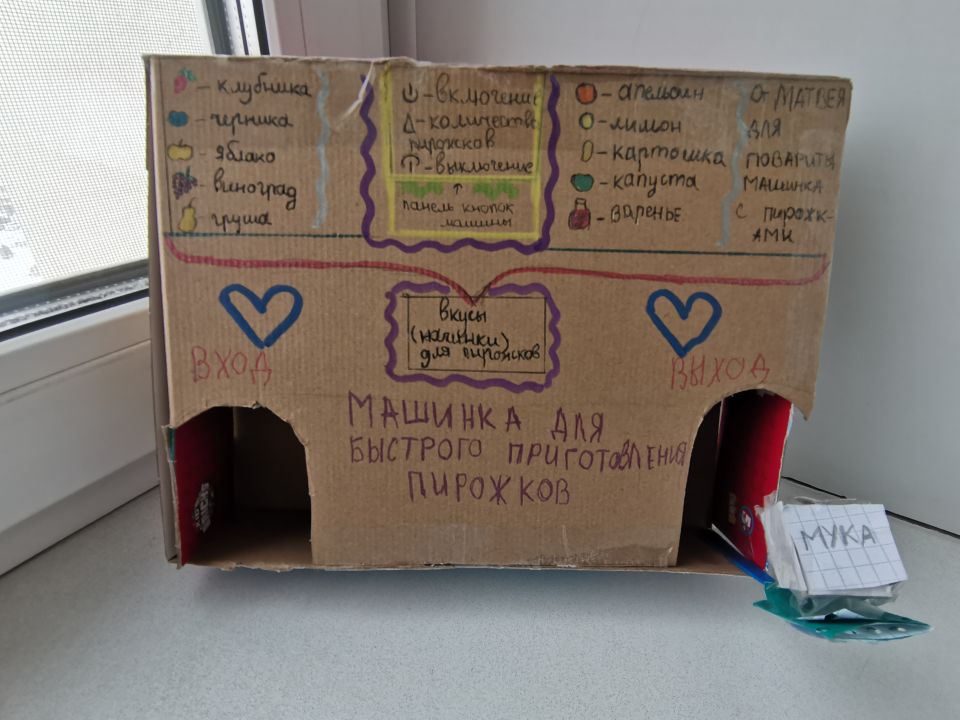 - клубника
- черника
- яблоко
- виноград
- груша
- включение
- количество
пирожков
- выключение
панель кнопок
машины
- апельсин
- лимон
- картошка
- капуста
- варенье
От МАТВЕЯ
ДЛЯ
ПОВАРИТЫ
МАШИНКА
С ПИРОЖК-
АМИ
вкусы
(начинки)
для пирожков
ВХОД
ВЫХОД
МАШИНКА ДЛЯ
БЫСТРОГО ПРИГОТОВЛЕНИЯ
ПИРОЖКОВ
МУКА